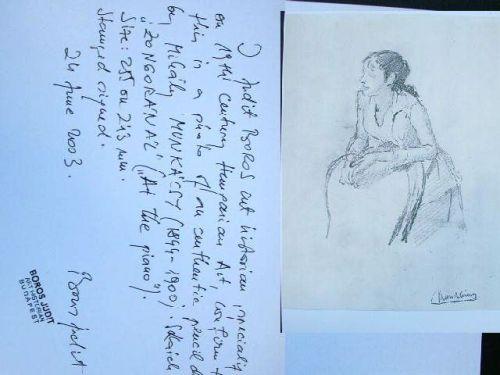 I Judit BOROS art historian, specialis
on 19th century Hungarian Art confirm t
this is a photo of an authentic pencil d
by Mihály MUNKÁCSY (1844-1900). Sketch
„ZONGORÁNÁL” („At the piano”).
Size: on 213 mm.
Stamped signed.
24 June 2003.
Boros Judit
BOROS JUDIT
ART HISTORIAN
BUDAPEST